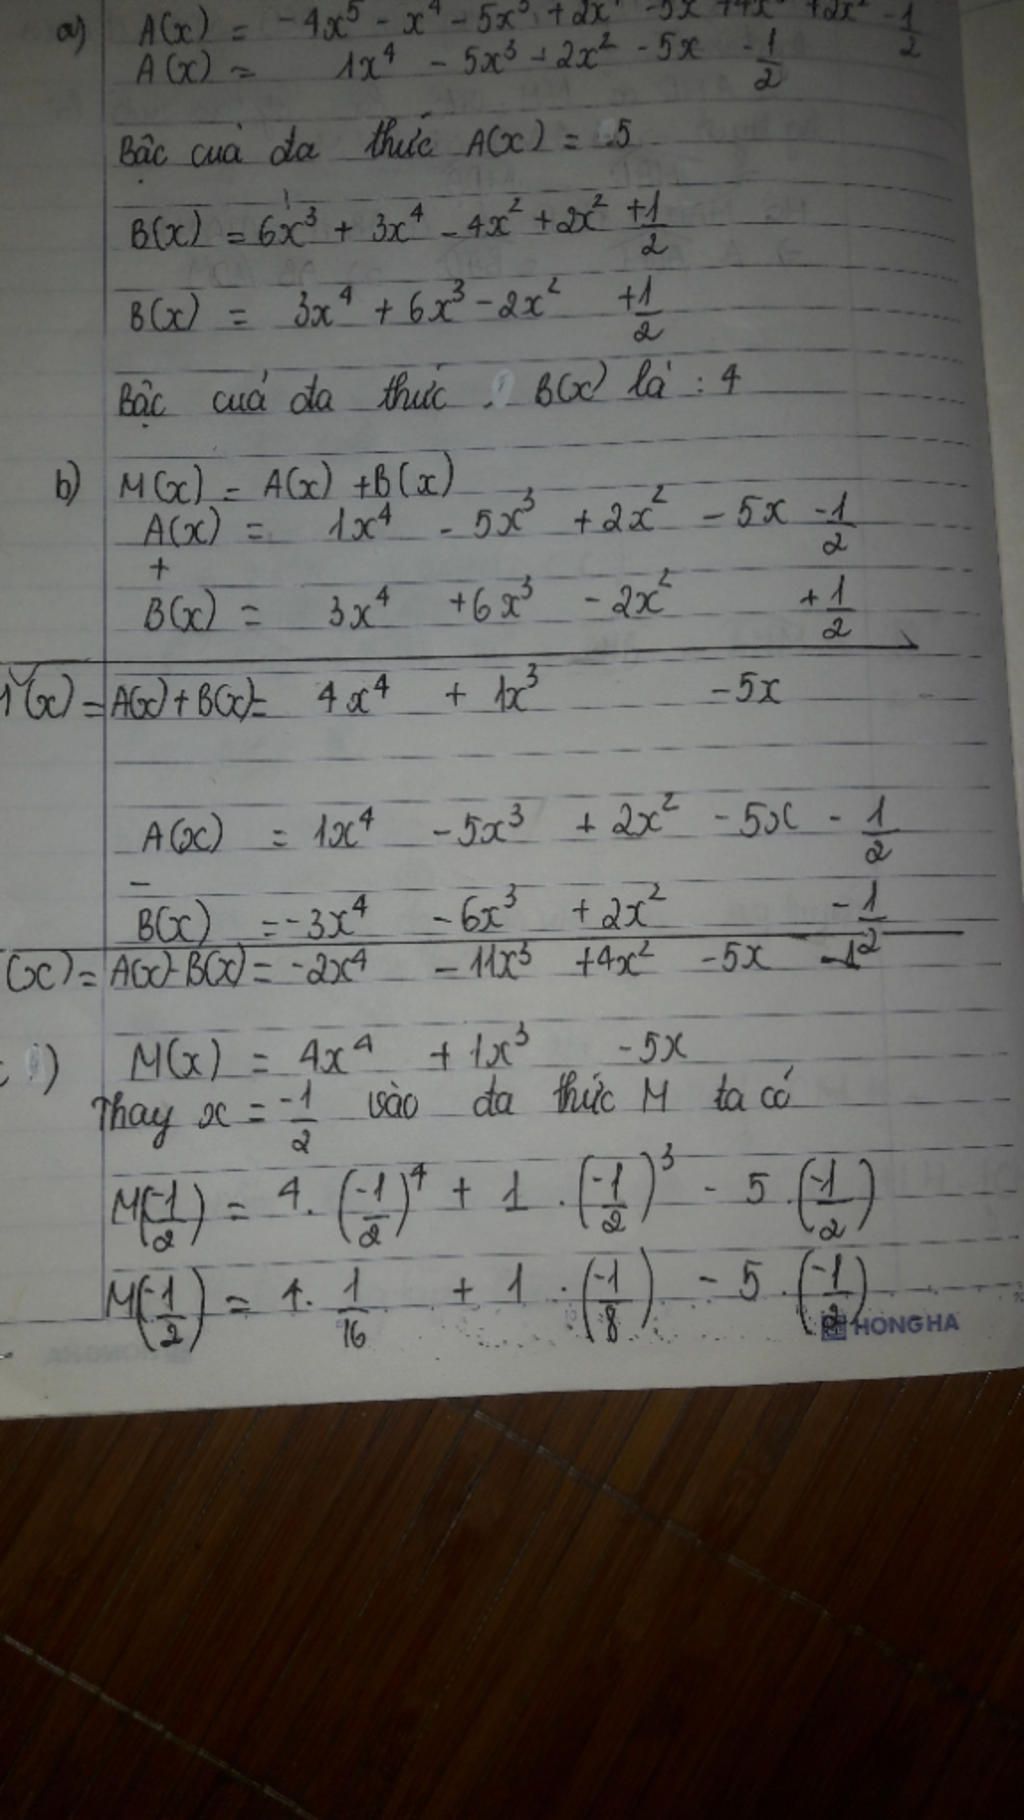 a) A(x) = -4x⁵ - x⁴ - 5x³ + 2x⁴ - 5x + 4x⁵ + 2x² - 1/2
A(x) = 1x⁴ - 5x³ + 2x² - 5x - 1/2
Bậc cuả đa thức A(x) = 5
B(x) = 6x³ + 3x⁴ - 4x² + 2x² + 1/2
B(x) = 3x⁴ + 6x³ - 2x² + 1/2
Bậc cuả đa thức B(x) là : 4
b) M(x) = A(x) + B(x)
A(x) = 1x⁴ - 5x³ + 2x² - 5x - 1/2
+
B(x) = 3x⁴ + 6x³ - 2x² + 1/2
(x) = A(x) + B(x) = 4x⁴ + 1x³ - 5x
A(x) = 1x⁴ - 5x³ + 2x² - 5x - 1/2
-
B(x) = -3x⁴ - 6x³ + 2x² - 1/2
(x) = A(x) - B(x) = -2x⁴ - 11x³ + 4x² - 5x - 1
) M(x) = 4x⁴ + 1x³ - 5x
Thay x = -1/2 vào đa thức M ta có
M(-1/2) = 4 . (-1/2)⁴ + 1 . (-1/2)³ - 5 . (-1/2)
M(-1/2) = 4 . 1/16 + 1 . (-1/8) - 5 . (-1/2)
HONG HA